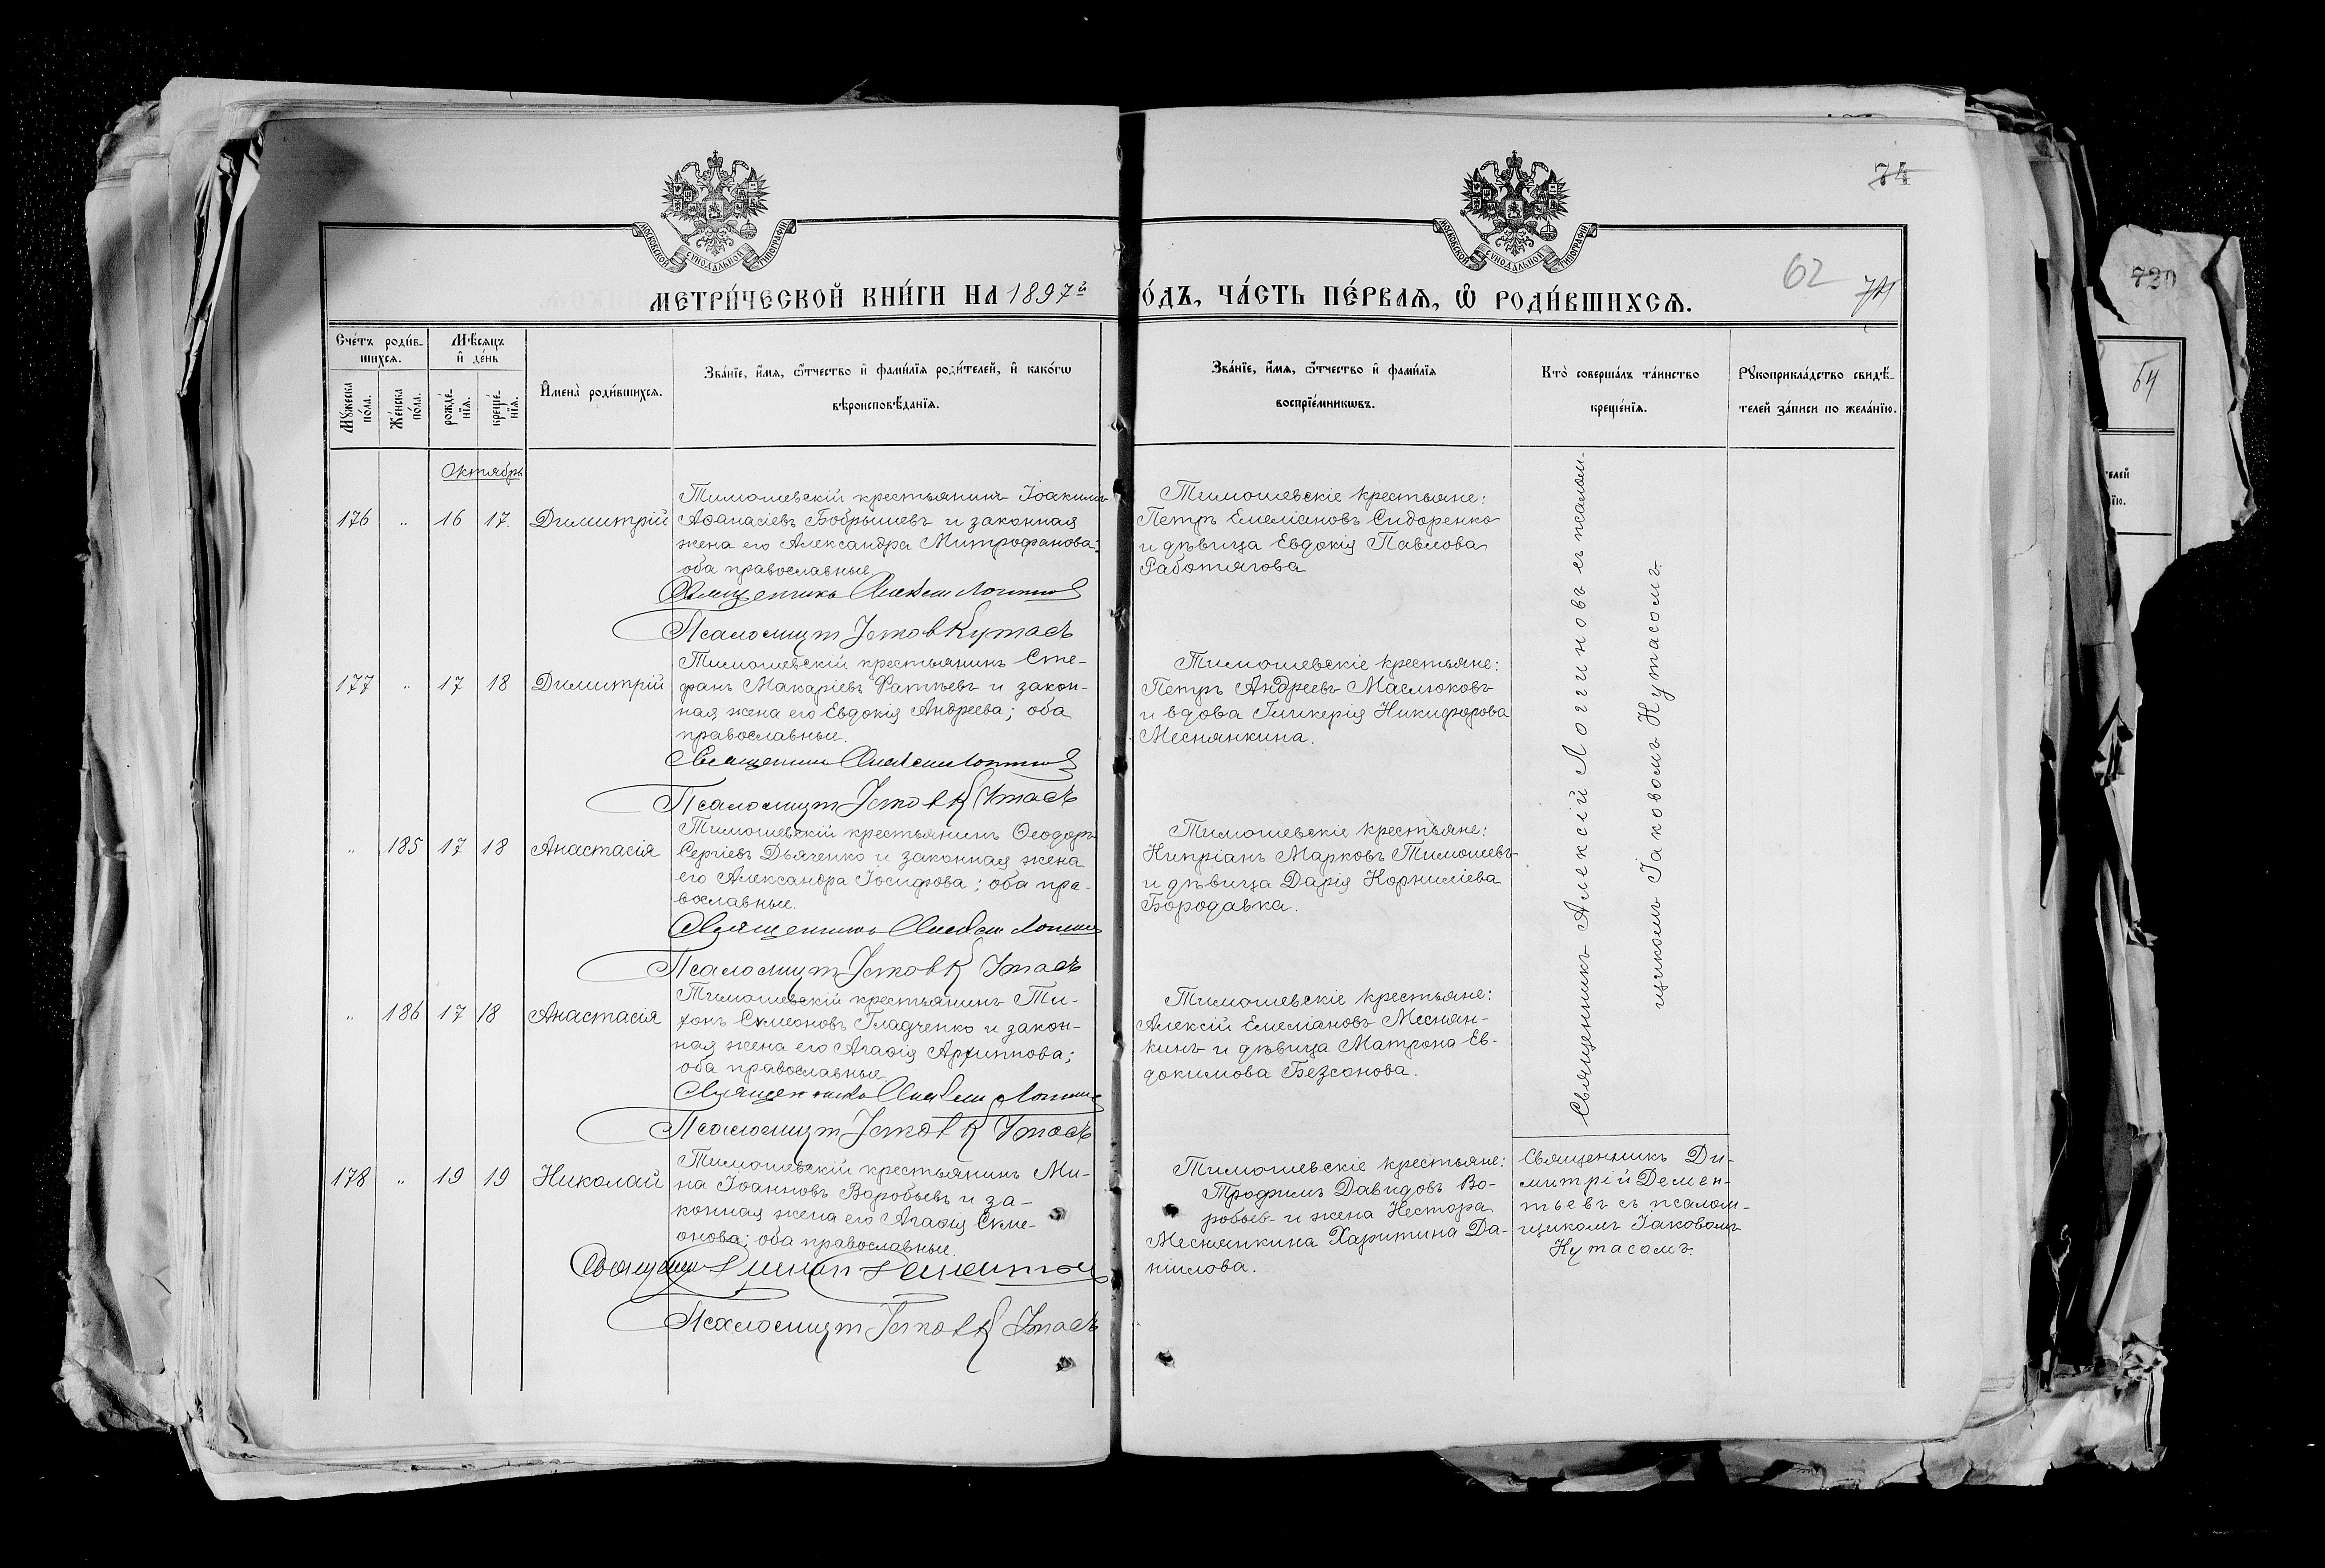 74
МОСКОВСКОЙ СУНОДАЛЬНОЙ ТИПОГРАФІИ
МОСКОВСКОЙ СУНОДАЛЬНОЙ ТИПОГРАФІИ
730
МЕТРИ́ЧЕСКОЙ КНИ́ГИ НА 1897й
О́ДЪ, ЧА́СТЬ ПЕ́РВАЯ, Ѡ҆ РОДИ́ВШИХСЯ.
62
74
Сче́тъ роди́в-
шихся.
Мѣ́сяцъ
и҆ де́нь
Мꙋ́жеска
по́ла.
Же́нска
по́ла.
рожде́-
нїя.
креще́-
нїя.
И҆мена̀ роди́вшихся.
Зва́нїе, и҆́мя, ѻ҆́тчество и҆ фами́лїя роди́телей, и҆ како́гѡ
вѣроисповѣ́данїя.
Зва́нїе, и҆́мя, ѻ҆́тчество и҆ фами́лїя
воспрїе́мникѡвъ.
Кто̀ соверша́лъ та́инство
креще́нїя.
Рꙋкоприкла́дство свидѣ́-
телей за́писи по жела́нїю.
64
телей
їю.
Октябрь
176 " 16 17. Димитрій
Тимошевскій крестьянинъ Іоакимъ
Аѳанасіевъ Бобрышевъ и законная
жена его Александра Митрофанова:
оба православные
Священникъ Алексій Логгиновъ
Псаломщикъ Іаковъ Кутасъ
Тимошевскіе крестьяне:
Петръ Емеліановъ Сидоренко
и дѣвица Евдокія Павлова
Работягова
177 " 17 18 Димитрій
Тимошевскій крестьянинъ Сте-
фанъ Макаріевъ и закон-
ная жена его Евдокія Андреева; оба
православные.
Священникъ Алексій Логгиновъ
Псаломщикъ Іаковъ Кутасъ
Тимошевскіе крестьяне:
Петръ Андреевъ Маслюковъ
и вдова Гликерія Никифорова
Меснянкина.
" 185 17 18 Анастасія
Тимошевскій крестьянинъ Ѳеодоръ
Сергіевъ Дьяченко и законная жена
его Александра Іосифова; оба пра-
вославные.
Священникъ Алексій Логгиновъ
Псаломщикъ Іаковъ Кутасъ
Тимошевскіе крестьяне:
Кипріанъ Марковъ Тимошевъ
и дѣвица Дарія Корниліева
Бородавка.
" 186 17 18 Анастасія
Тимошевскій крестьянинъ Ти-
хонъ Сѵмеоновъ Гладченко и закон-
ная жена его Агаѳія Архиппова;
оба православные
Священникъ Алексій Логгиновъ
Псаломщикъ Іаковъ Кутасъ
Тимошевскіе крестьяне:
Алексій Емеліановъ Меснян-
кинъ и дѣвица Матрона Ев-
докимова Безсонова.
Священникъ Алексій Логгиновъ съ псалом-
щикомъ Іаковомъ Кутасомъ.
178 " 19 19 Николай
Тимошевскій крестьянинъ Ми-
на Іоанновъ Воробьевъ и за-
конная жена его Агаѳія Сѵме-
онова; оба православные.
Псаломщикъ Іаковъ Кутасъ
Тимошевскіе крестьяне:
Трофимъ Давидовъ Во-
робьев и жена Нестора
Меснянкина Харитина Да-
ніилова.
Священникъ Ди-
митрій Демен-
тьевъ съ псалом-
щикомъ Іаковомъ
Кутасомъ.